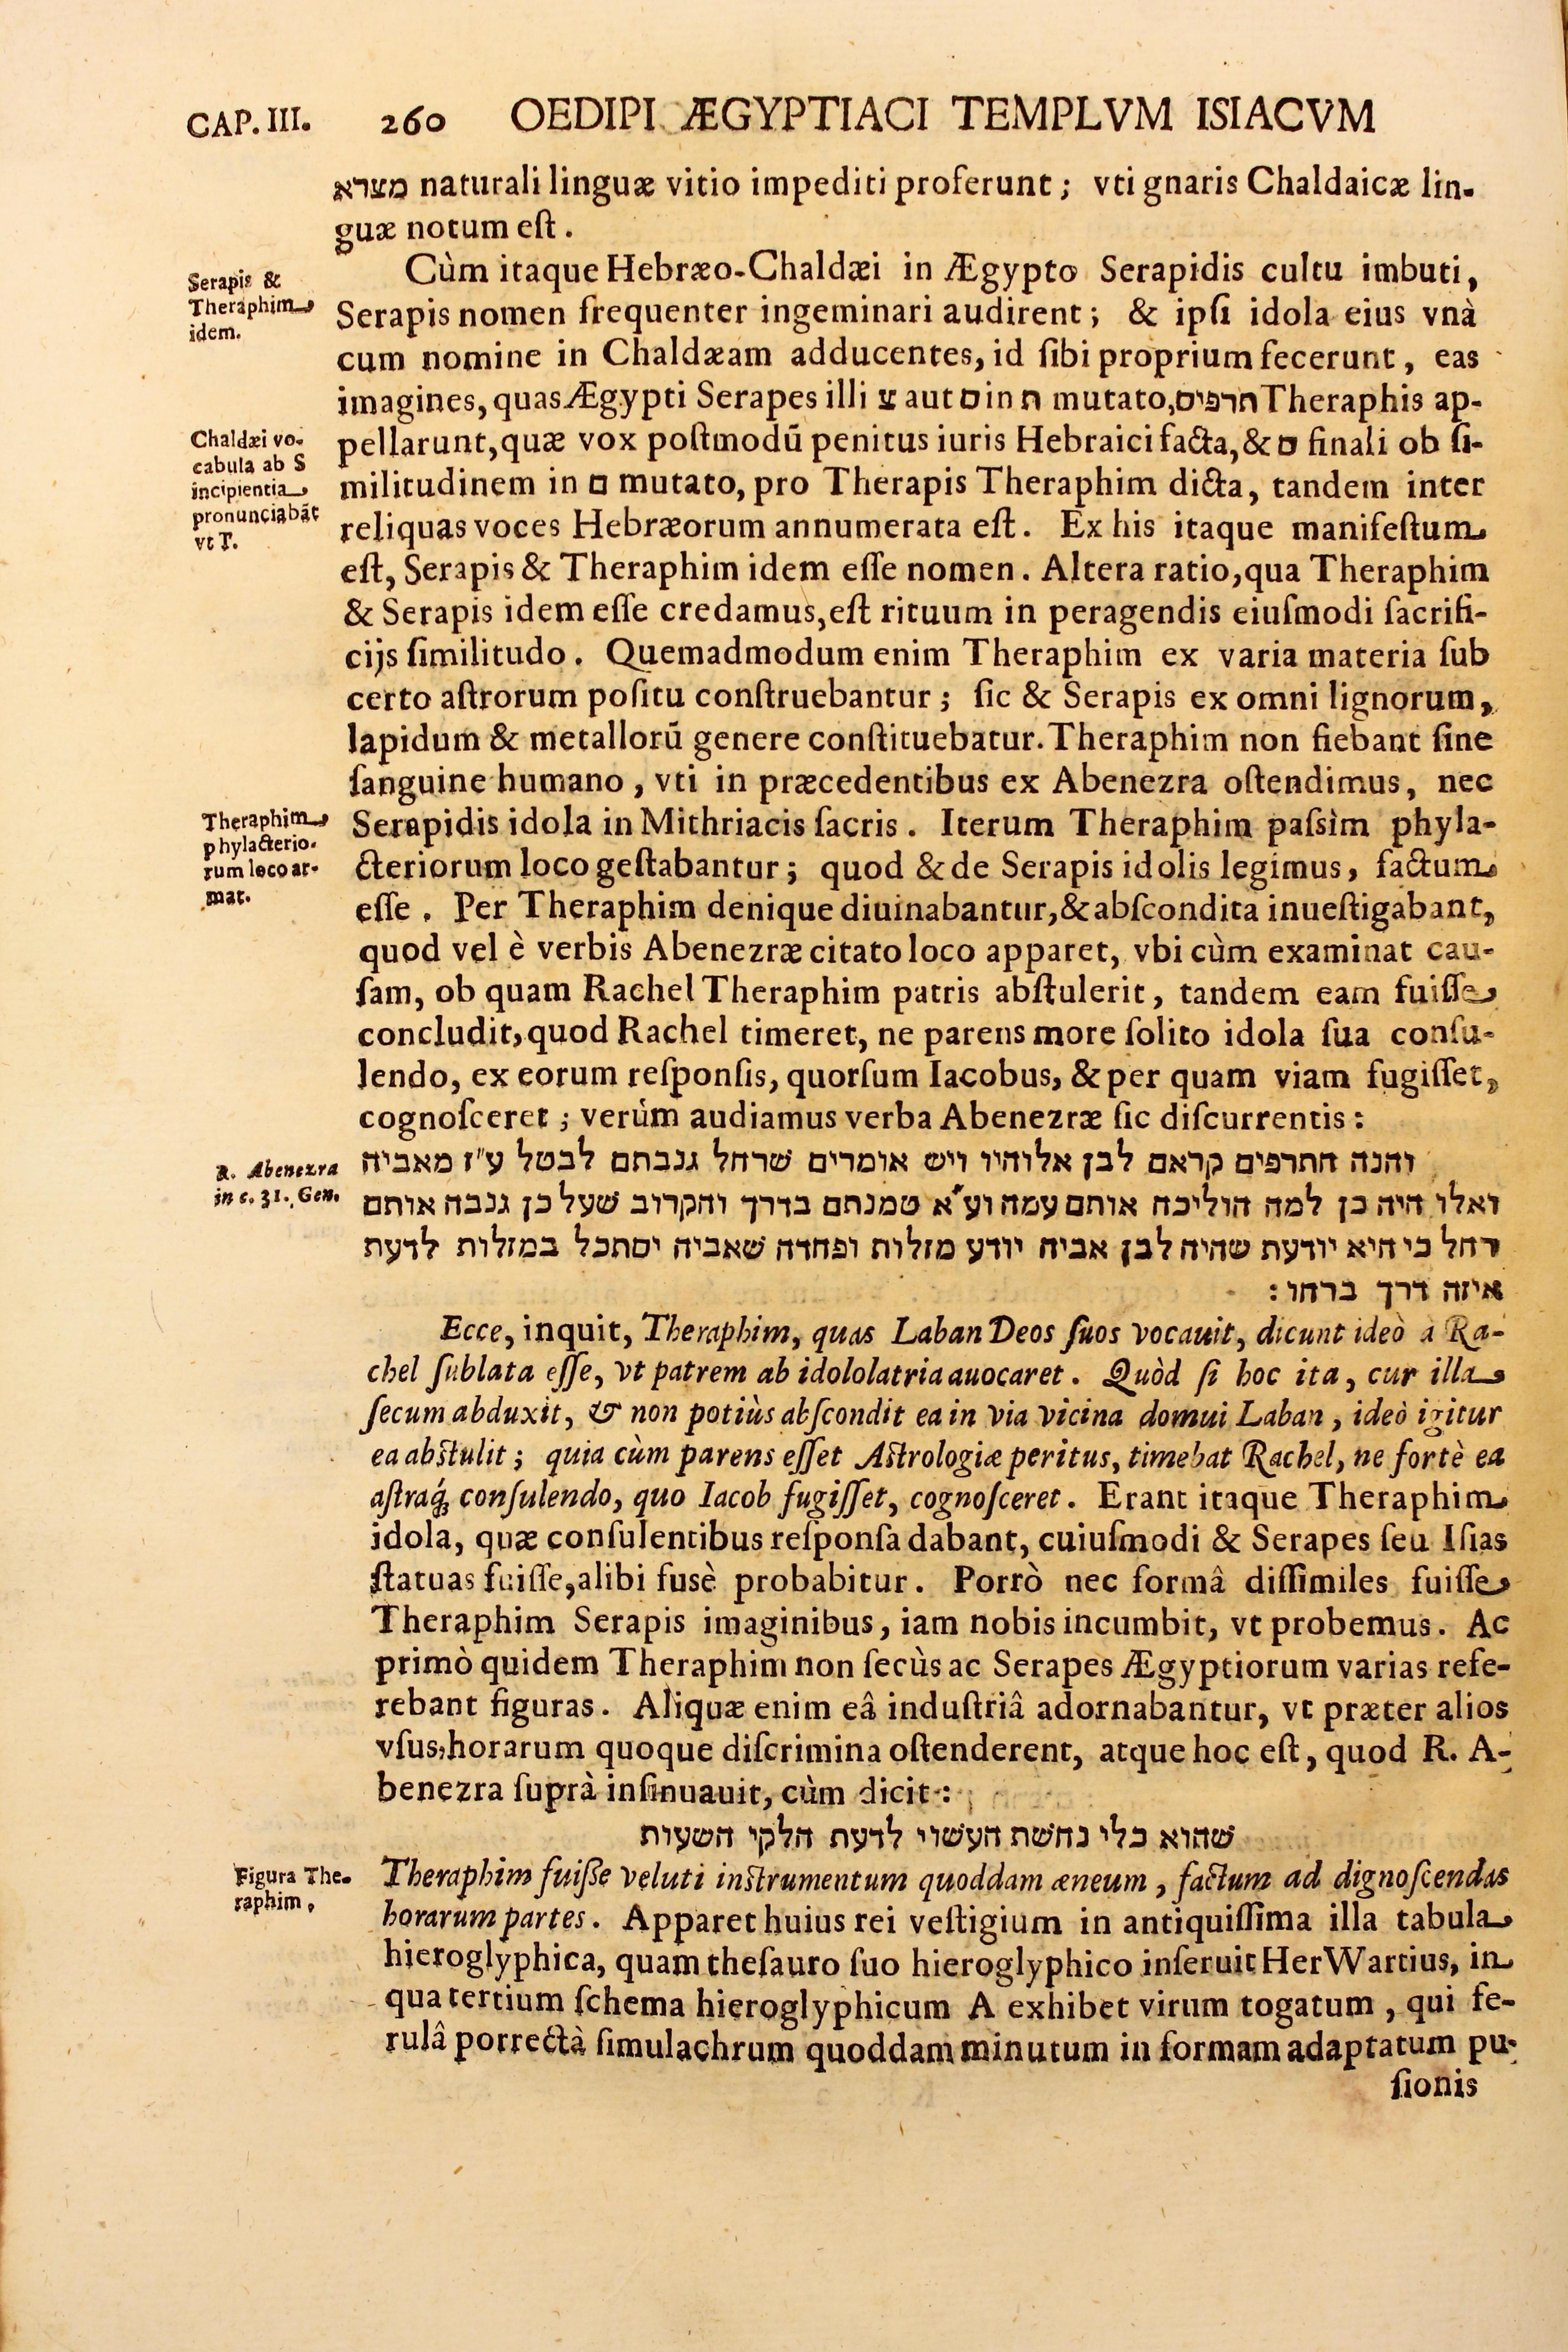 CAP. III. 260 OEDIPI ÆGYPTIACI TEMPLVM ISIACVM
מצרא naturali linguæ vitio impediti proferunt; vti gnaris Chaldaicæ lin-
guæ notum eſt.
Serapis &
Theraphim
idem.
Cùm itaque Hebræo-Chaldæi in Ægypto Serapidis cultu imbuti,
Serapis nomen frequenter ingeminari audirent; & ipſi idola eius vnà
cum nomine in Chaldæam adducentes, id ſibi proprium fecerunt, eas
imagines, quas Ægypti Serapes illi צ aut ס in ת mutato, תרפיס Theraphis ap-
Chaldæi vo-
cabula ab S
incipientia
pronunciabãt
vt T.
pellarunt, quæ vox poſtmodũ penitus iuris Hebraici facta, & ס finali ob ſi-
militudinem in ם mutato, pro Therapis Theraphim dicta, tandem inter
reliquas voces Hebræorum annumerata eſt. Ex his itaque manifeſtum
eſt, Serapis & Theraphim idem eſſe nomen. Altera ratio, qua Theraphim
& Serapis idem eſſe credamus, eſt rituum in peragendis eiuſmodi ſacrifi-
cijs ſimilitudo. Quemadmodum enim Theraphim ex varia materia ſub
certo aſtrorum poſitu conſtruebantur; ſic & Serapis ex omni lignorum,
lapidum & metallorũ genere conſtituebatur. Theraphim non fiebant ſine
ſanguine humano, vti in præcedentibus ex Abenezra oſtendimus, nec
Theraphim
phylacterio-
rum loco ar-
mat.
Serapidis idola in Mithriacis ſacris. Iterum Theraphim paſsìm phyla-
cteriorum loco geſtabantur; quod & de Serapis idolis legimus, factum
eſſe. Per Theraphim denique diuinabantur, & abſcondita inueſtigabant,
quod vel è verbis Abenezræ citato loco apparet, vbi cùm examinat cau-
ſam, ob quam Rachel Theraphim patris abſtulerit, tandem eam fuiſſe
concludit, quod Rachel timeret, ne parens more ſolito idola ſua conſu-
lendo, ex eorum reſponſis, quorſum Iacobus, & per quam viam fugiſſet,
cognoſceret; verùm audiamus verba Abenezræ ſic diſcurrentis:
R. Abenezra
in c. 31. Gen.
והנה התרפים קראם לבן אלוהיו ויש אומרים שרחל גנבתם לבטל ע״ז מאביה
ואלו היה כן למה הוליכה אותם עמה וע״א טמנתם בדרך והקרוב שעל כן גנבה אותם
רחל כי היא יודעת שהיה לבן אביה יודע מזלות ופחדה שאביה יסתכל במזלות לדעת
איזה דרך ברחו:
Ecce, inquit, Theraphim, quas Laban Deos ſuos vocauit, dicunt ideò à Ra-
chel ſublata eſſe, vt patrem ab idololatria auocaret. Quòd ſi hoc ita, cur illa
ſecum abduxit, & non potiùs abſcondit ea in via vicina domui Laban, ideò igitur
ea abſtulit; quia cùm parens eſſet Aſtrologiæ peritus, timebat Rachel, ne fortè ea
aſtraq́; conſulendo, quo Iacob fugiſſet, cognoſceret. Erant itaque Theraphim
idola, quæ conſulentibus reſponſa dabant, cuiuſmodi & Serapes ſeu Iſias
ſtatuas fuiſſe, alibi fusè probabitur. Porrò nec formâ diſſimiles fuiſſe
Theraphim Serapis imaginibus, iam nobis incumbit, vt probemus. Ac
primò quidem Theraphim non ſecùs ac Serapes Ægyptiorum varias refe-
rebant figuras. Aliquæ enim eâ induſtriâ adornabantur, vt præter alios
vſus, horarum quoque diſcrimina oſtenderent, atque hoc eſt, quod R. A-
benezra ſuprà inſinuauit, cùm dicit:
שהוא כלי נחשת העשוי לדעת הלקי השעות
Figura The-
raphim.
Theraphim fuiſſe veluti inſtrumentum quoddam æneum, factum ad dignoſcendas
horarum partes. Apparet huius rei veſtigium in antiquiſſima illa tabula
hieroglyphica, quam theſauro ſuo hieroglyphico inſeruit HerWartius, in
qua tertium ſchema hieroglyphicum A exhibet virum togatum, qui fe-
rulâ porrectà ſimulachrum quoddam minutum in formam adaptatum pu-
ſionis